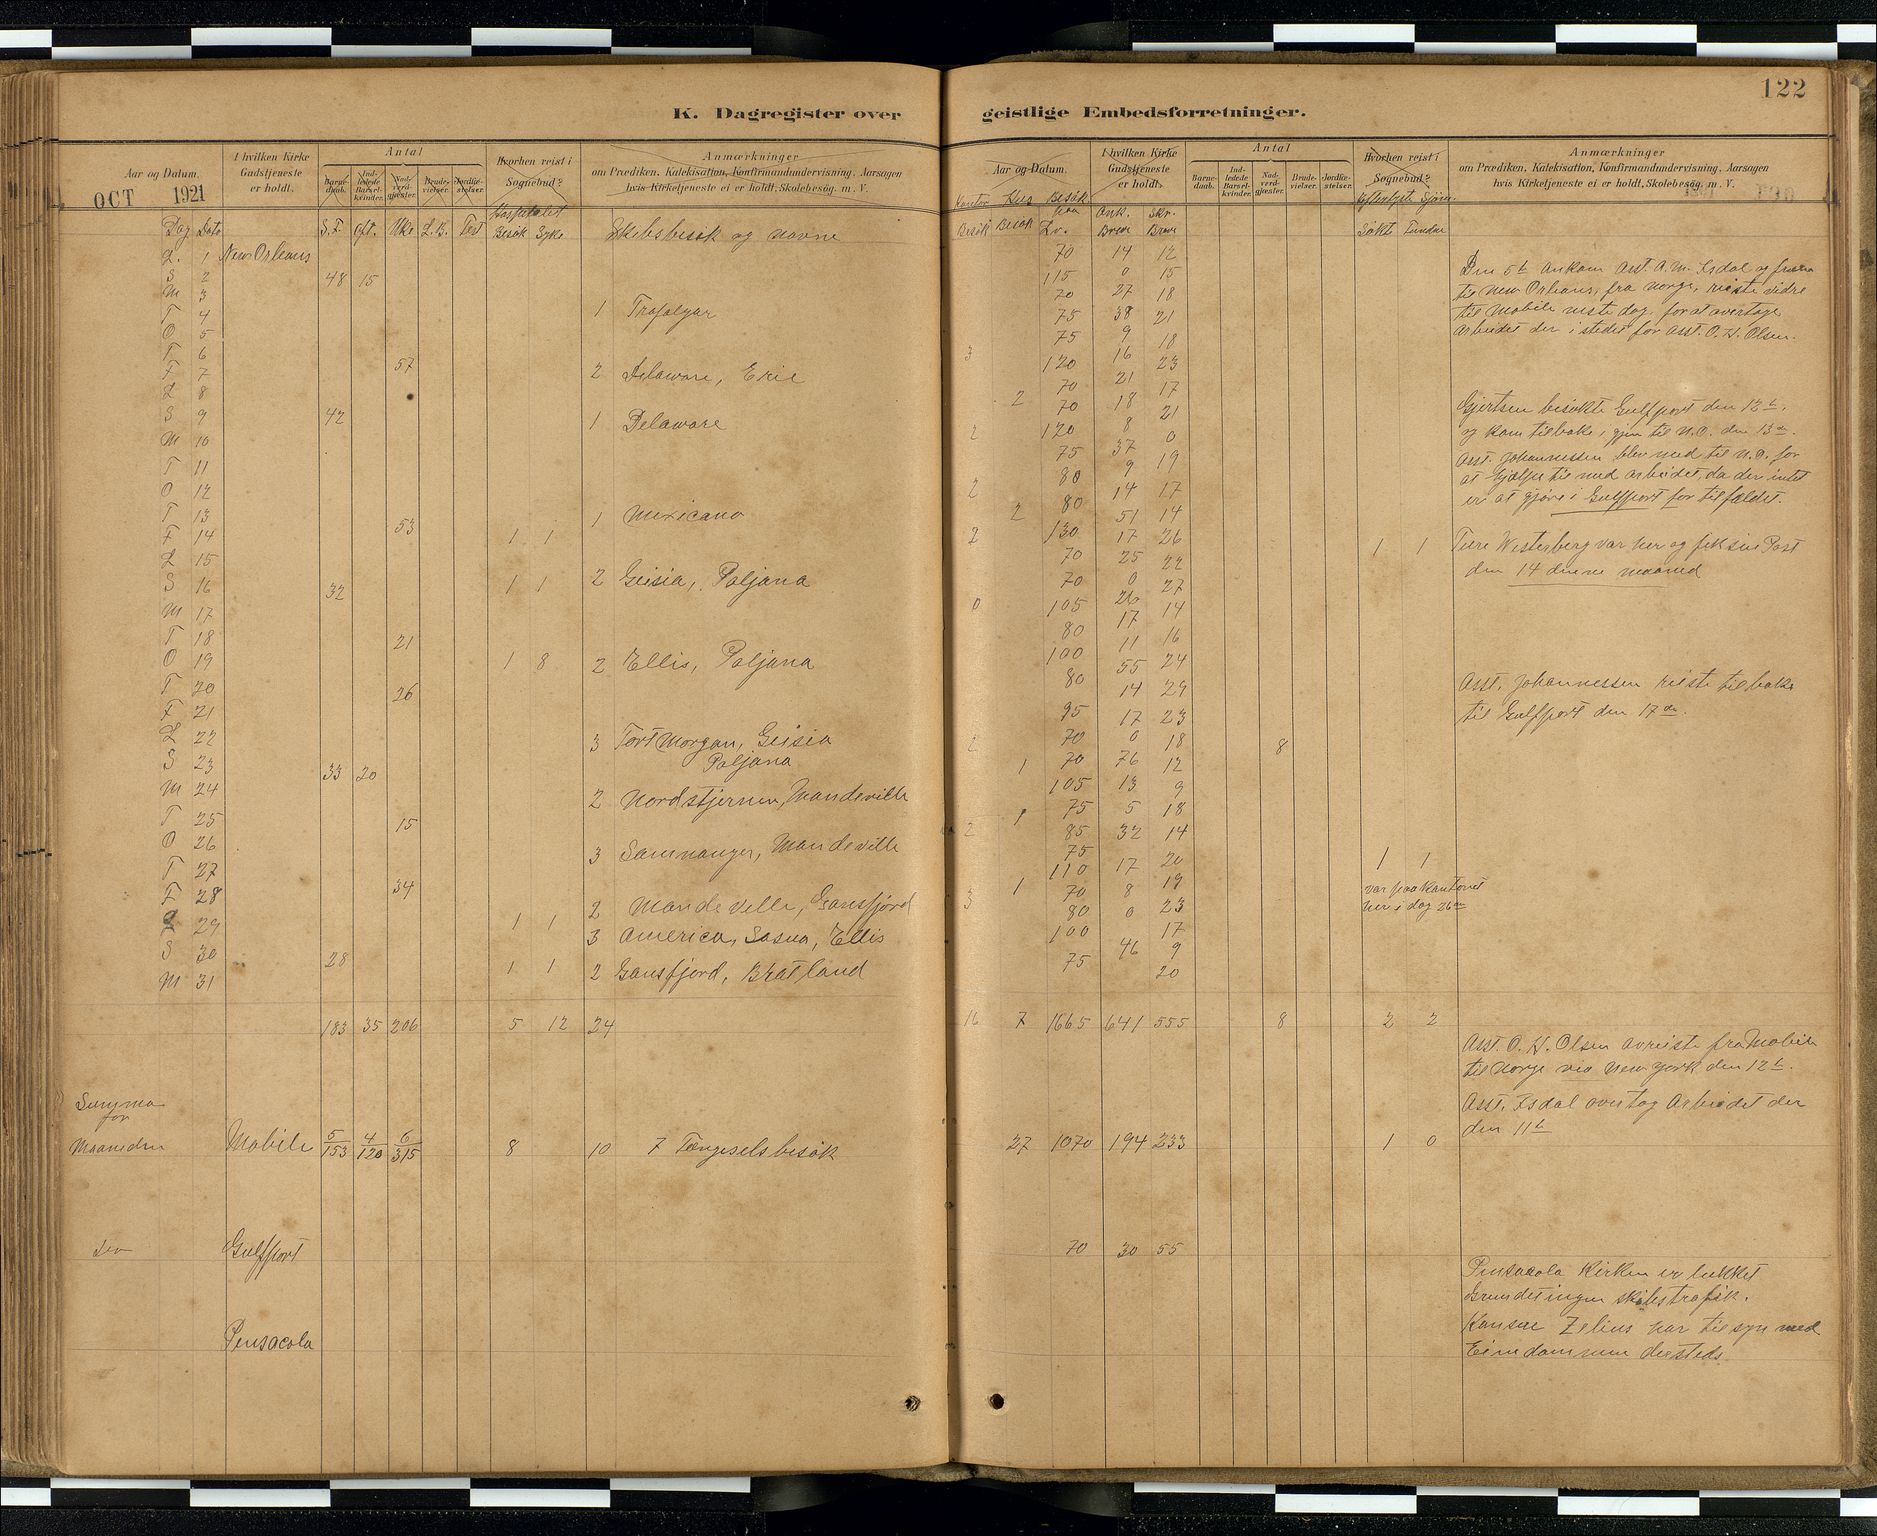 122
K. Dagregister over geistlige Embedsforretninger.
Aar og Datum.
I hvilken Kirke Gudstjeneste er holdt.
Antal
Barnedaab.
Indledede Barselkvinder.
Nadverdgjester.
Brudevielser.
Jordfæstelser.
Hvorhen reist i Sognebud?
Anmærkninger
om Prædiken. Katekisation, Konfirmandundervisning. Aarsagen
hvis Kirketjeneste ei er holdt, Skolebesøg. m. V.
Aar og Datum.
I hvilken Kirke Gudstjeneste er holdt.
Antal
Barnedaab.
Indledede Barselkvinder.
Nadverdgjester.
Brudevielser.
Jordfæstelser.
Hvorhen reist i Sognebud?
Anmærkninger
om Prædiken. Katekisation, Konfirmandundervisning. Aarsagen
hvis Kirketjeneste ei er holdt, Skolebesøg. m. V.
OCT 1921
Dag Dato S.F. Eft. Uke L.B. Fest Hospitalet Besøk Syke Skibsbesøk og navne
L. 1 New Orleans
S 2 48 15
M 3
T 4 1 Trafalgar
O 5
T 6
F 7 57 2 Delaware, Erie
L 8
S 9 42 1 Delaware
M 10
T 11
O 12
T 13 1 Mexicano
F 14 53 1 1
L 15
S 16 32 1 1 2 Geisia, Poljana
M 17
T 18 21
O 19 1 8 2 Ellis, Poljana
T 20 26
F 21
L 22 3 Fort Morgan, Geisia
S 23 33 20 Poljana
M 24 2 Nordstjernen, Mandeville
T 25 15
O 26 3 Samnanger, Mandeville
T 27
F 28 34 2 Mandeville, Gansfjord
29 1 1 3 America, Sosua, Ellis
S 30 28
M 31 1 1 2 Gansfjord, Bratland
183 35 206 5 12 24
Summa
for
Maaneden Mobile 5/153 4/120 6/315 8 10 7 Fængselsbesøk
Gulfport
Pensacola
Kontor Besøk Hus Besøk Besøk paa Lv. Ank. Breve Skr. Breve Efterlyste Sjøm. Søkt Funden
70 14 12
115 0 15
70 27 18
75 38 21
75 9 18
3 120 16 23
70 21 17
2 70 18 21
2 120 8 0
75 37 19
80 9
2 80 14 17
2 51 14
2 130 17 26 1 1
70 25 22
70 0 27
0 105 26 14
80 17
11 16
100 55 24
80 14 29
95 17 23
2 70 0 18 8
1 70 76 12
105 13 9
1 75 5 18
2 85 32 14
75
110 17 20 1 1
1 70 8 19 var paa Kantoret
3 80 0 23 her i dag 26de
100 17
75 46 9
20
16 7 1665 641 555 8 2 2
27 1070 194 233 1 0
70 30 55
Den 5te Ankom Asst. A.M. Isdal og frue
til New Orleans, fra Norge, reiste vidre
til Mobile neste dag, for at overtage
Arbeidet der i stedet for Asst. O.H. Olsen.
Gjertsen besøkte Gulfport den 12te,
og kom tilbake igjen til N.O. den 13de.
Asst. Johannessen blev med til N.O. for
at hjælpe til med arbeidet, da der intet
er at gjøre i Gulfport for tilfældet.
Westerberg var her og fik sin Post
den 14 denne maaned
Asst. Johannessen reiste tilbake
til Gulfport den 17de.
Asst. O. H. Olsen avreiste fra Mobile
til Norge via New York den 12te.
Asst. Isdal overtog Arbeidet der
den 11te
Pensacola Kirken er lukket
Grundet ingen skibstrafik.
Konsul Zelius har tilsyn med
Eiendommen dersteds.